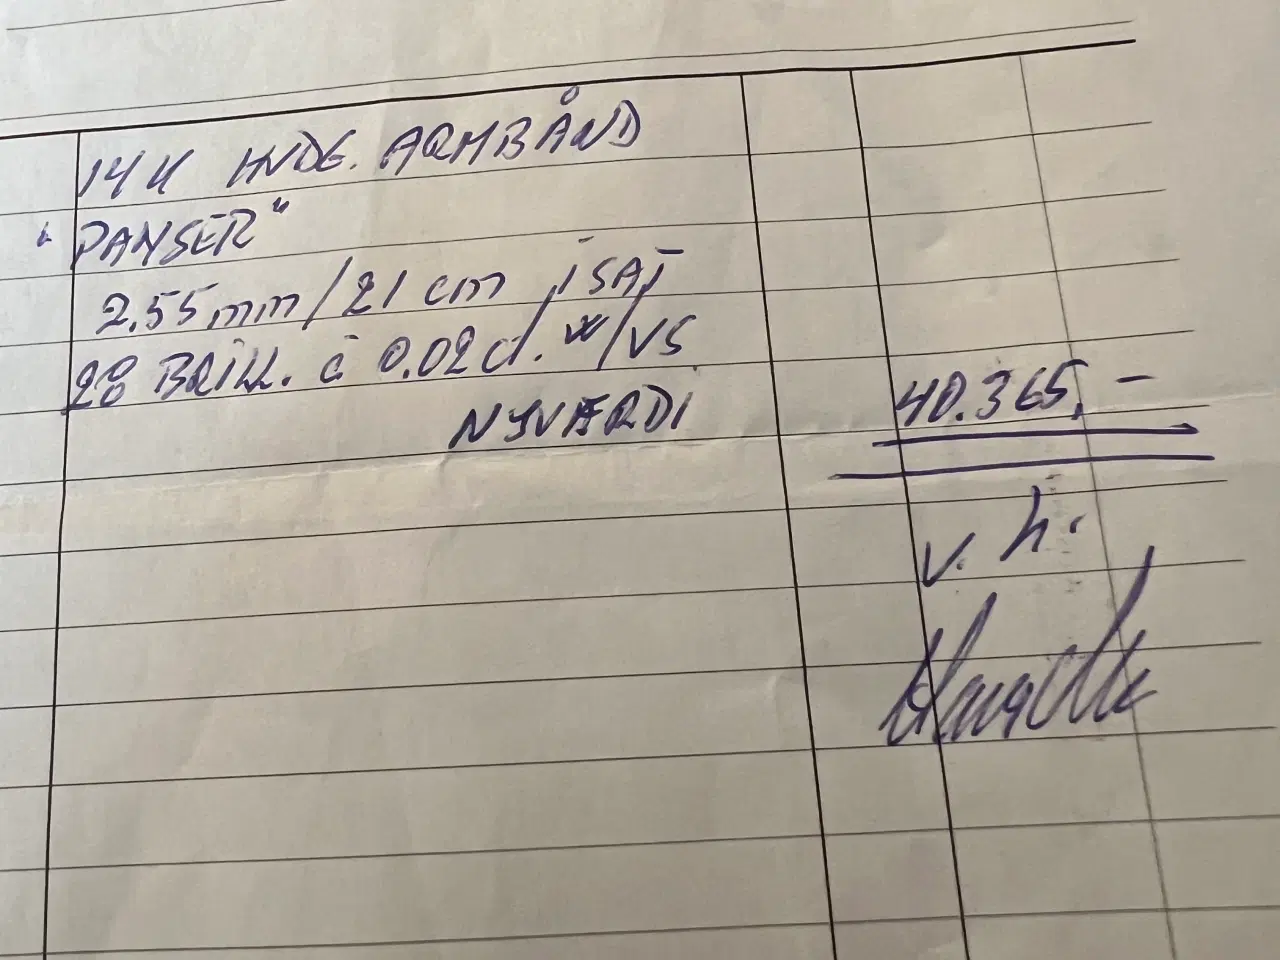 14 K HVDG. ARMBÅND
"PANSER"
2.55 mm/21 cm, ISAT
28 BRILL. à 0.02 ct. W/VS
NYVÆRDI 40.365,-
v. h.